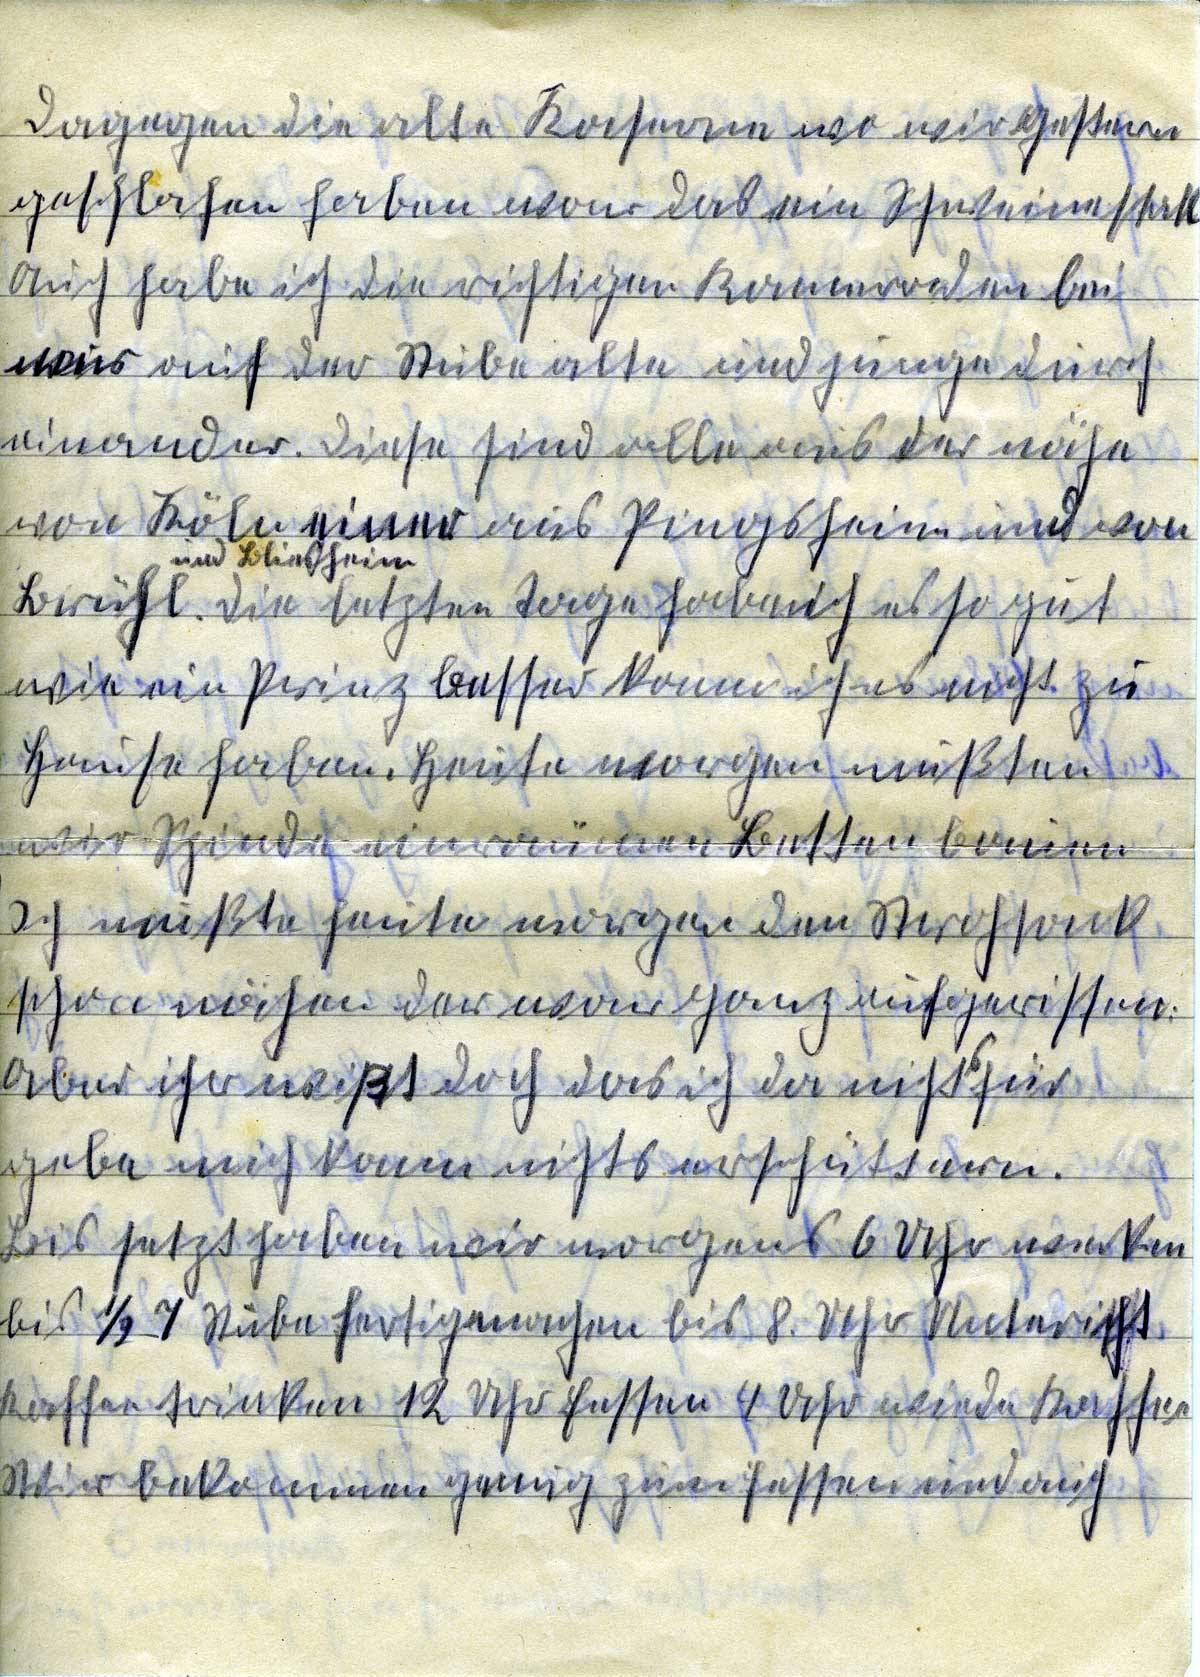 Dagegen die alte Kaserne wo wir gestern
geschlafen haben war das ein Schweinestall
Auch habe ich die richtigen Kameraden bei
uns auf der Stube alte und junge durch
einander. Diese sind alle aus der nähe
von Köln einer aus Pingsheim und von
und Bliesheim
Brühl. Die letzten Tage habe ich es so gut
wie ein Prinz besser kann ich es nicht zu
Hause haben. Heute morgen mußten
wir Spinde einräumen Betten bauen
Ich mußte heute morgen den Strohsack
schon nähen der war ganz aufgerissen.
Aber ihr wißt doch das ich da nichts für
gebe mich kann nichts erschüttern.
Bis jetzt haben wir morgens 6 Uhr wecken
bis 1/2 7 Stube fertigmachen bis 8. Uhr Unterricht
Kaffee trinken 12 Uhr Essen 4 Uhr wieder Kaffee
Wir bekommen genug zum essen und auch